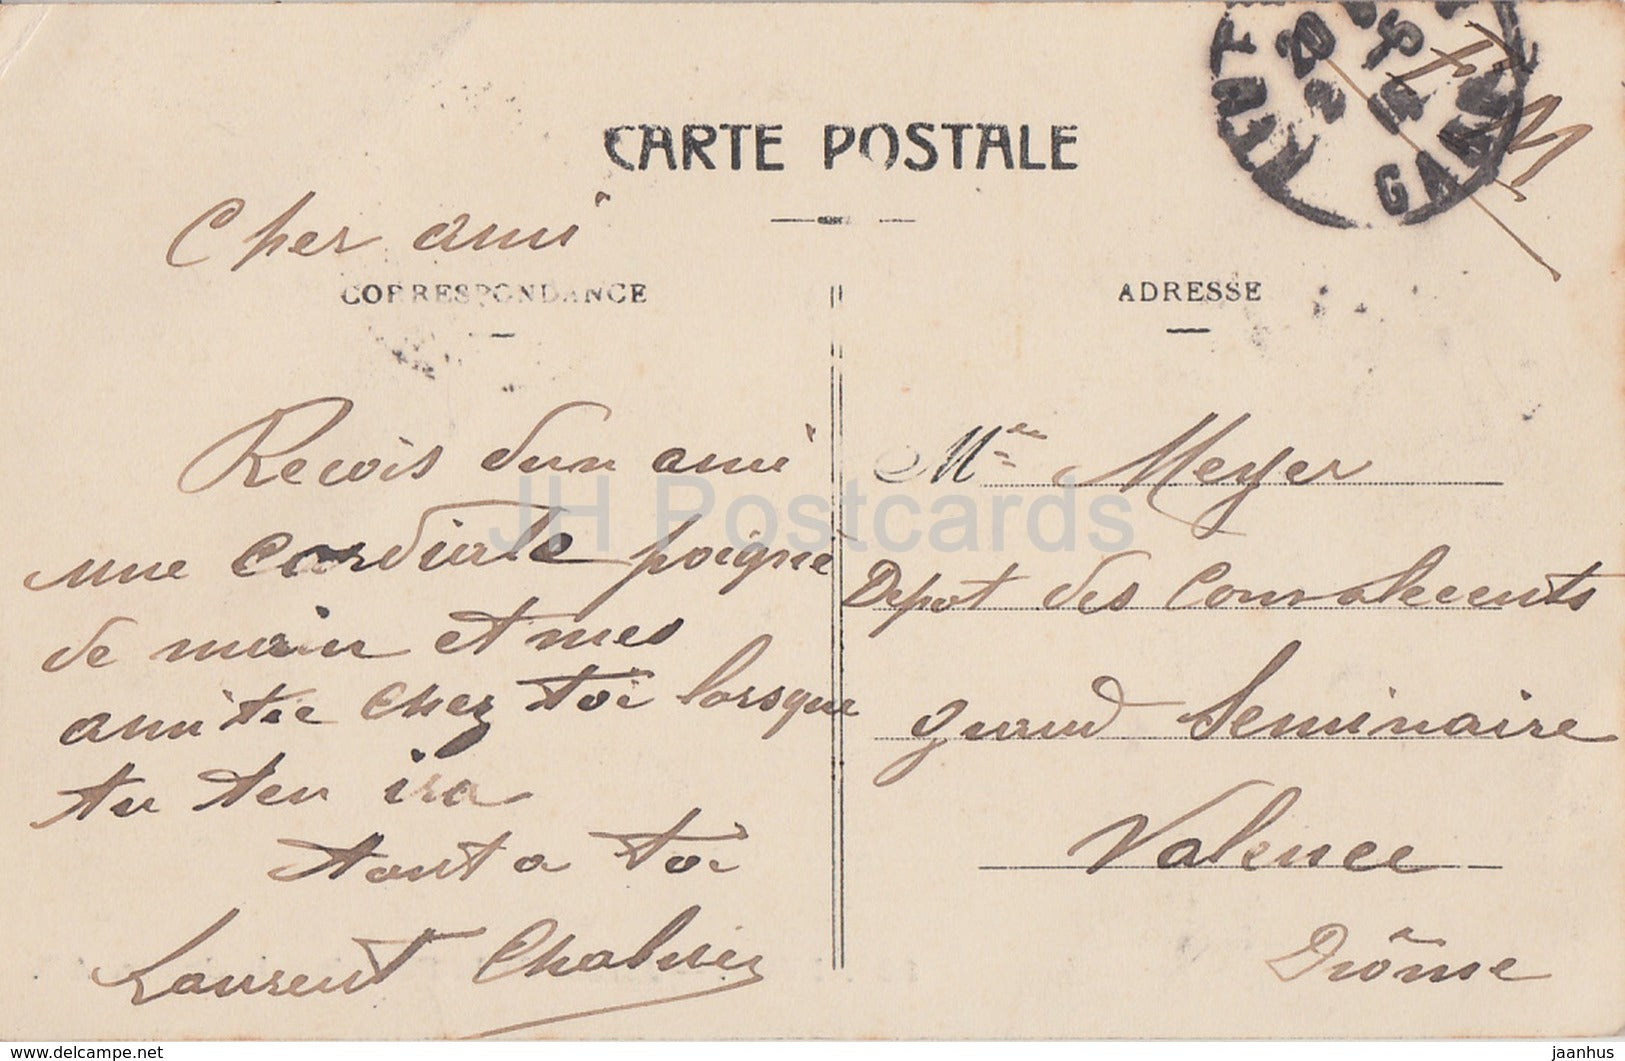 CARTE POSTALE
F. M.
GARD
Cher ami
CORRESPONDANCE
Recois dun ami
une cordiale poigne
de main et mes
amitie chez toi lorsque
tu ten ira
tout a toi
Laurent
ADRESSE
Meyer
Depot des Convalecents
grand Seminaire
Valence
Drôme
JH Postcards
www.delcampe.net
jaanhus